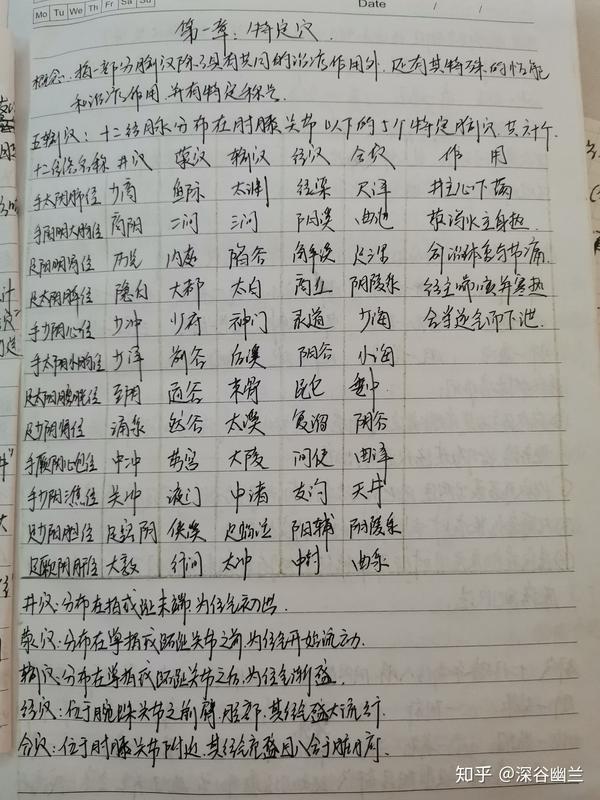 Mo Tu We Th Fr Sa Su
Date / /
第一章:特定穴.
概念:指一部分腧穴除了具有共同的治疗作用外,还有其特殊的性能
和治疗作用,并有特定称号.
五输穴:十二经脉分布在肘膝关节以下的5个特定腧穴,共六十个.
十二经络名称 井穴 荥穴 输穴 经穴 合穴 作用
手太阴肺经 少商 鱼际 太渊 经渠 尺泽 井主心下满
手阳明大肠经 商阳 二间 三间 阳溪 曲池 荥 主身热.
足阳明胃经 历兑 内庭 陷谷 足三里 俞治体重节痛.
足太阴脾经 隐白 大都 太白 商丘 阴陵泉 经主喘咳寒热
手少阴心经 少冲 少府 神门 灵道 少海 合主逆气而下泄.
手太阳小肠经 少泽 前谷 后溪 阳谷 小海
足太阳膀胱经 至阴 通谷 束骨 昆仑 委中
足少阴肾经 涌泉 然谷 太溪 复溜 阴谷
手厥阴心包经 中冲 劳宫 大陵 间使 曲泽
手少阳三焦经 关冲 液门 中渚 支沟 天井
足少阳胆经 足窍阴 侠溪 足临泣 阳辅 阳陵泉
足厥阴肝经 大敦 行间 太冲 中封 曲泉
井穴:分布在指或趾末端,为经气初出.
荥穴:分布在掌指或跖趾关节之前,为经气开始流动.
输穴:分布在掌指或跖趾关节之后,为经气渐盛.
经穴:位于腕踝关节之前臂、胫部,其经气盛大流行.
合穴:位于肘膝关节附近,其经气充盛且入合于脏腑.
知乎 @深谷幽兰